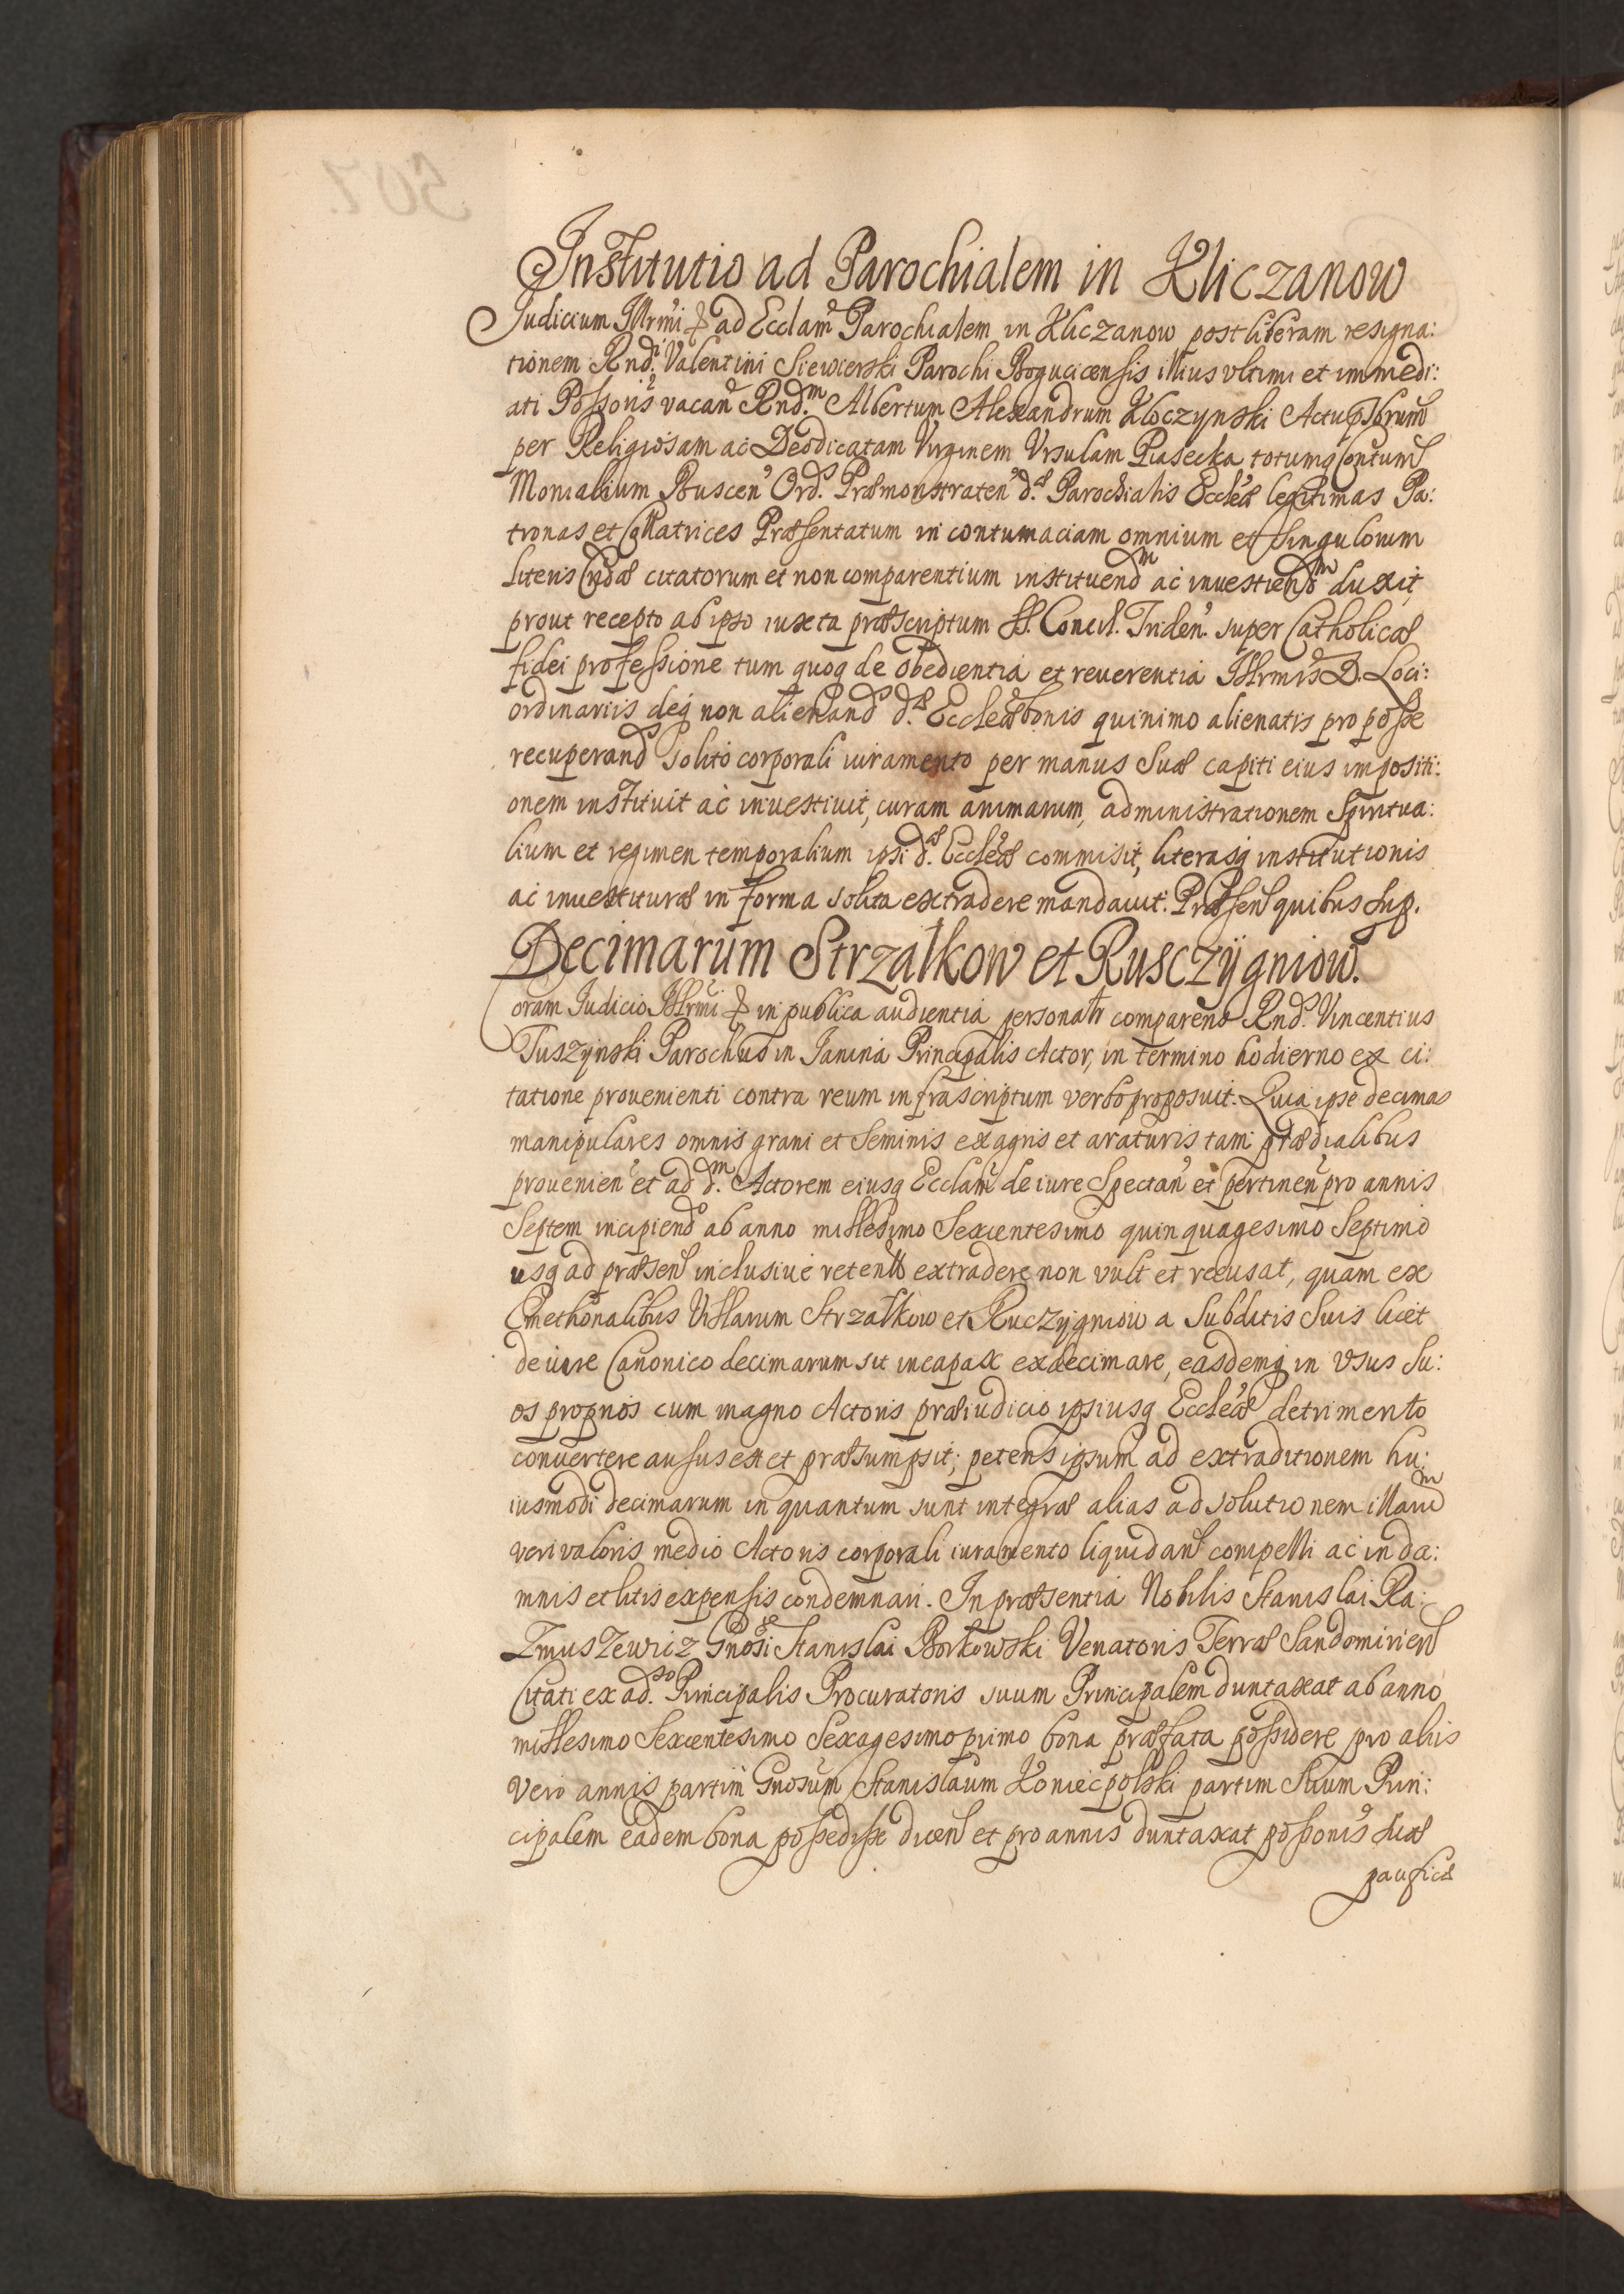 Institutio ad Parochialem in Kliczanow
Judicium Illrmi & ad Ecclam Parochialem in Kliczanow post liberam resigna:
tionem Rndi Valentini Siewierski Parochi Bogucicensis illius vltimi et immedi:
ati Possoris vacan Rnd.m Albertum Alexandrum Kloczynski Actu Psbrum
per Religiosam ac Deodicatam Virginem Vrsulam Piasecka totumq Contum
Monialium Buscen Ord.s Præmonstraten d.æ Parochialis Eccleæ legitimas Pa:
tronas et Collatrices Præsentatum in contumaciam omnium et Singulorum
literis Cridæ citatorum et non comparentium instituendm ac inuestiendm duxit,
prout recepto ab ipso iuxta præscriptum SS. Concil. Triden. super Catholicæ
fidei professione tum quoq de obedientia et reuerentia Illrmis D. Loci:
ordinariis deq non alienands d.æ Eccleæ bonis quinimo alienatis pro posse
recuperands Solito corporali iuramento per manus Suæ capiti eius impositi:
onem instituit ac inuestiuit, curam animarum, administrationem Spiritua:
lium et regimen temporalium ipsi d.æ Eccleæ commisit, literasq institutionis
ac inuestituræ in forma solita extradere mandauit. Præsen quibus sup.
Decimarum Strzałkow et Rusczÿgniow.
Coram Judicio Illrmi & in publica audientia personalr comparens Rnd.s Vincentius
Tuszÿnski Parochus in Janina Principalis Actor, in termino hodierno ex ci:
tatione prouenienti contra reum infrascriptum verbo proposuit. Quia ipse decimas
manipulares omnis grani et Seminis ex agris et araturis tam prædialibus
prouenien et ad d.m Actorem eiusq Ecclam de iure Spectan et pertinen pro annis
Septem incipiendo ab anno millesimo Sexcentesimo quinquagesimo Septimo
usq ad præsen inclusiue retentas extradere non vult et recusat, quam ex
Cmethonalibus Villarum Strzałkow et Ruczÿgniow a Subditis Suis licet
de iure Canonico decimarum sit incapax exdecimare, easdemq in vsus Su:
os proprios cum magno Actoris præiudicio ipsiusq Eccleæ detrimento
conuertere ausus est et præsumpsit; petens ipsum ad extraditionem hu:
iusmodi decimarum in quantum sunt integræ alias ad solutionem illarum
veri valoris medio Actoris corporali iuramento liquidan compelli ac in da:
mnis et litis expensis condemnari. In præsentia Nobilis Stanislai Ra:
Zmuszewicz Gnosi Stanislai Borkowski Venatoris Terræ Sandomirien
Citati ex ad.so Principalis Procuratoris suum Principalem duntaxat ab anno
millesimo Sexcentesimo Sexagesimo primo bona præfata possidere pro aliis
vero annis partim Gnosum Stanislaum Koniecpolski partim Suum Prin:
cipalem eadem bona possedisse dicen et pro annis duntaxat possonis suæ
paucific